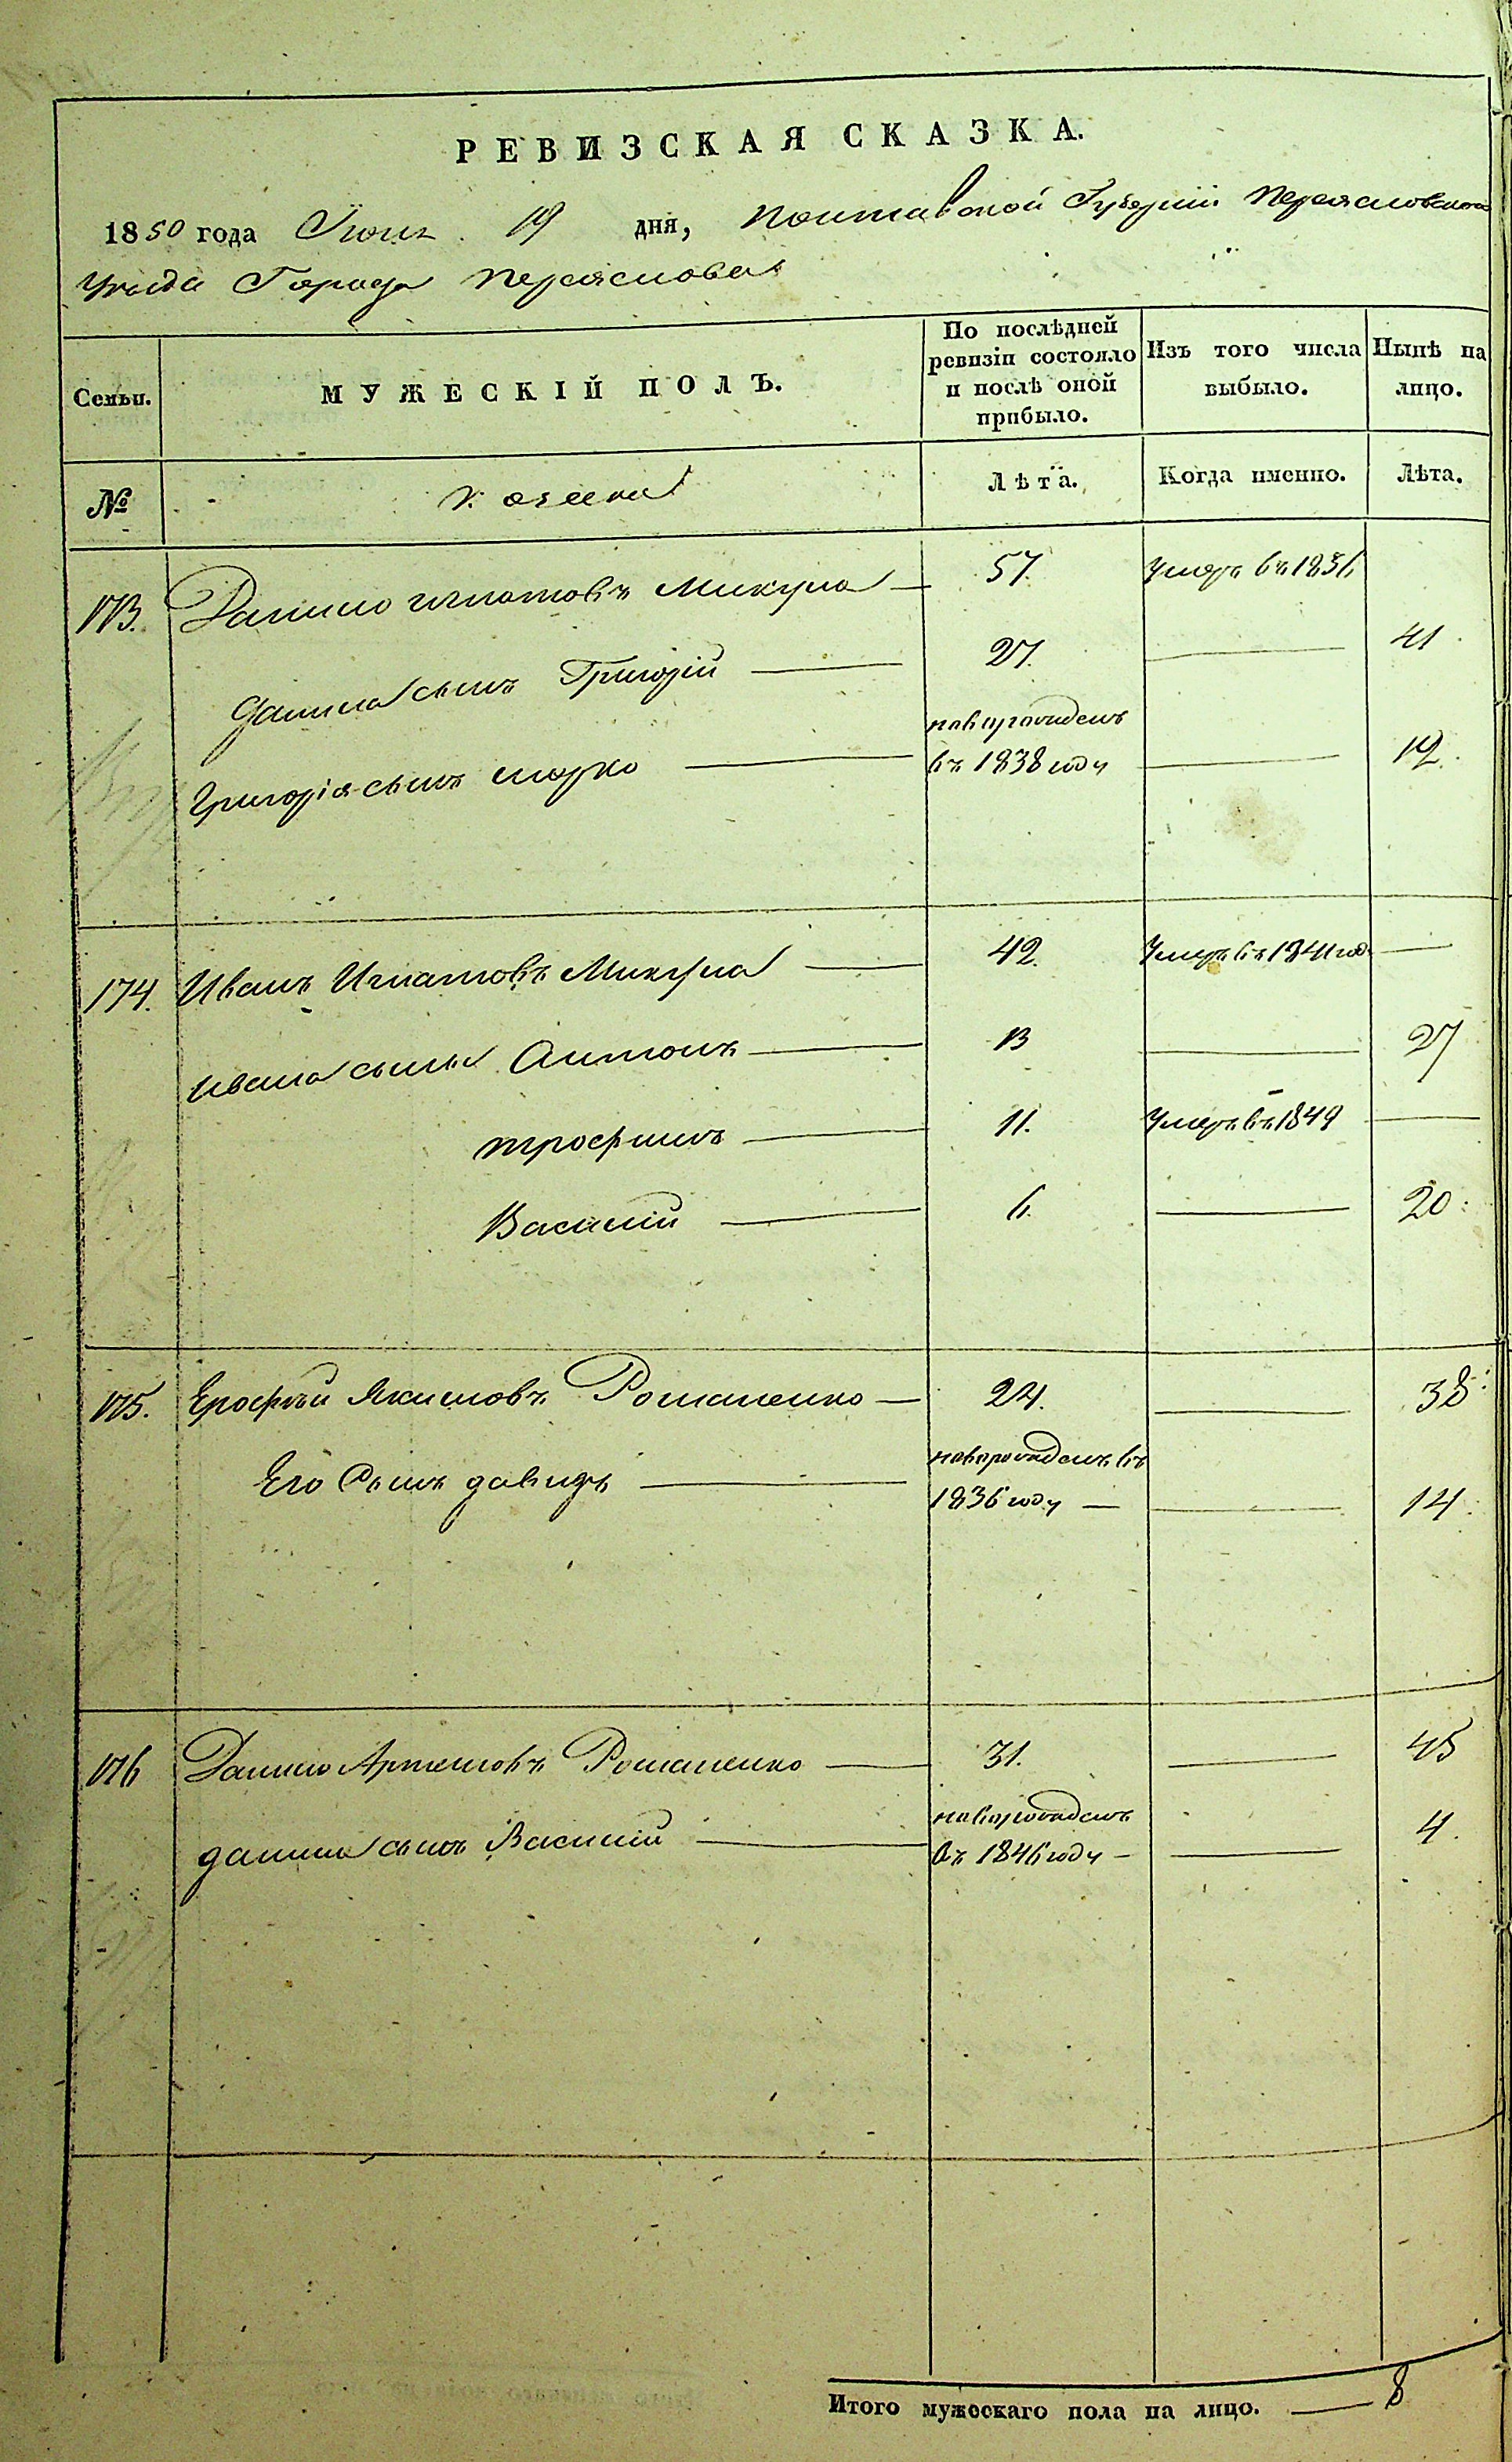 РЕВИЗСКАЯ СКАЗКА.
1850 года Июня 19 дня, Полтавской Губерніи Переясловского
Уезда Города Переяслова
Семьи.
МУЖЕСКІЙ ПОЛЪ.
По послѣдней ревизіи состояло и послѣ оной прибыло.
Изъ того числа выбыло.
Нынѣ на лицо.
№
Лѣта.
Когда именно.
Лѣта.
173. Данило игнатовъ Микула — 57. умеръ въ 1836
Данила сынъ Григорій — 27. — 41.
Григорія сынъ марко — новорожденъ въ 1838 году — 12.
174. Иванъ Игнатовъ Микула — 42. Умеръ въ 1841 год —
ивана сыны Антонъ — 13 — 27
трофимъ — 11. Умеръ въ 1849 —
Василій — 6. — 20.
175. Ерофѣй Якимовъ Романенко — 24. — 38
Его Сынъ давидъ — новорожденъ въ 1836 году — 14.
176 Данило Артемовъ Романенко — 31. — 45
данила сынъ Василій — новорожденъ въ 1846 году — 4.
Итого мужескаго пола на лицо. — 8